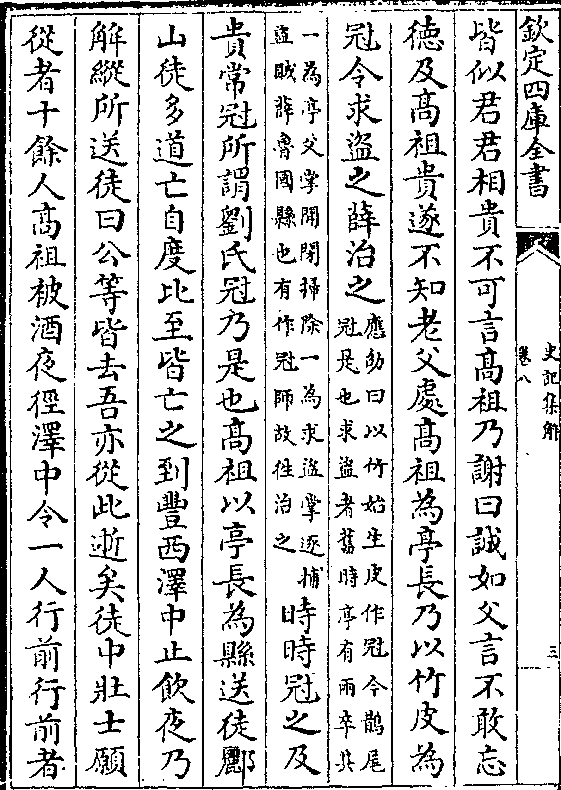 欽定四庫全書
史記集解
卷八
三
皆似君君相貴不可言高祖乃謝曰誠如父言不敢忘
徳及高祖貴遂不知老父處高祖為亭長乃以竹皮為
冠令求盜之薛治之應劭曰以竹始生皮作冠今鵲尾
冠是也求盜者舊時亭有兩卒其
一為亭父掌開閉掃除一為求盜掌逐捕
盜賊薛魯國縣也有作冠師故徃治之時時冠之及
貴常冠所謂劉氏冠乃是也高祖以亭長為縣送徒酈
山徒多道亡自度比至皆亡之到豐西澤中止飲夜乃
解縱所送徒曰公等皆去吾亦從此逝矣徒中壯士願
從者十餘人高祖被酒夜徑澤中令一人行前行前者